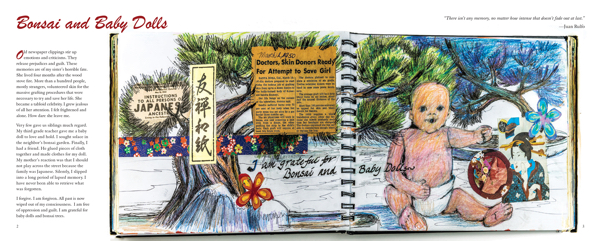 Bonsai and Baby Dolls
"There isn't any memory, no matter how intense that doesn't fade out at last."
—Juan Rulfo
Old newspaper clippings stir up
emotions and criticisms. They
release prejudices and guilt. These
memories are of my sister's horrible fire.
She lived four months after the wood
stove fire. More than a hundred people,
mostly strangers, volunteered skin for the
massive grafting procedures that were
necessary to try and save her life. She
became a tabled celebrity. I grew jealous
of all her attention. I felt frightened and
alone. How dare she leave me.
Very few gave us siblings much regard.
My third grade teacher gave me a baby
doll to love and hold. I sought solace in
the neighbor's bonsai garden. Finally, I
had a friend. He glued pieces of cloth
together and made clothes for my doll.
My mother's reaction was that I should
not play across the street because the
family was Japanese. Silently, I slipped
into a long period of lapsed memory. I
have never been able to retrieve what
was forgotten.
I forgive. I am forgiven. All past is now
wiped out of my consciousness. I am free
of oppression and guilt. I am grateful for
baby dolls and bonsai trees.
2
INSTRUCTIONS
TO ALL PERSONS OF
JAPANESE
ANCESTRY
友禅和紙
Doctors, Skin Donors Ready
For Attempt to Save Girl
I am grateful for
Bonsai and Baby Dolls